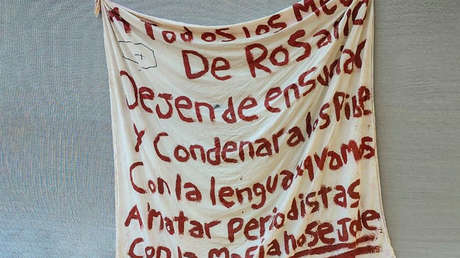 A Todos los Med
De Rosario
Dejen de ensuciar
y Condenar a los Pibe
Con la lengua
A matar periodistas
Con la Mafia no se Jode